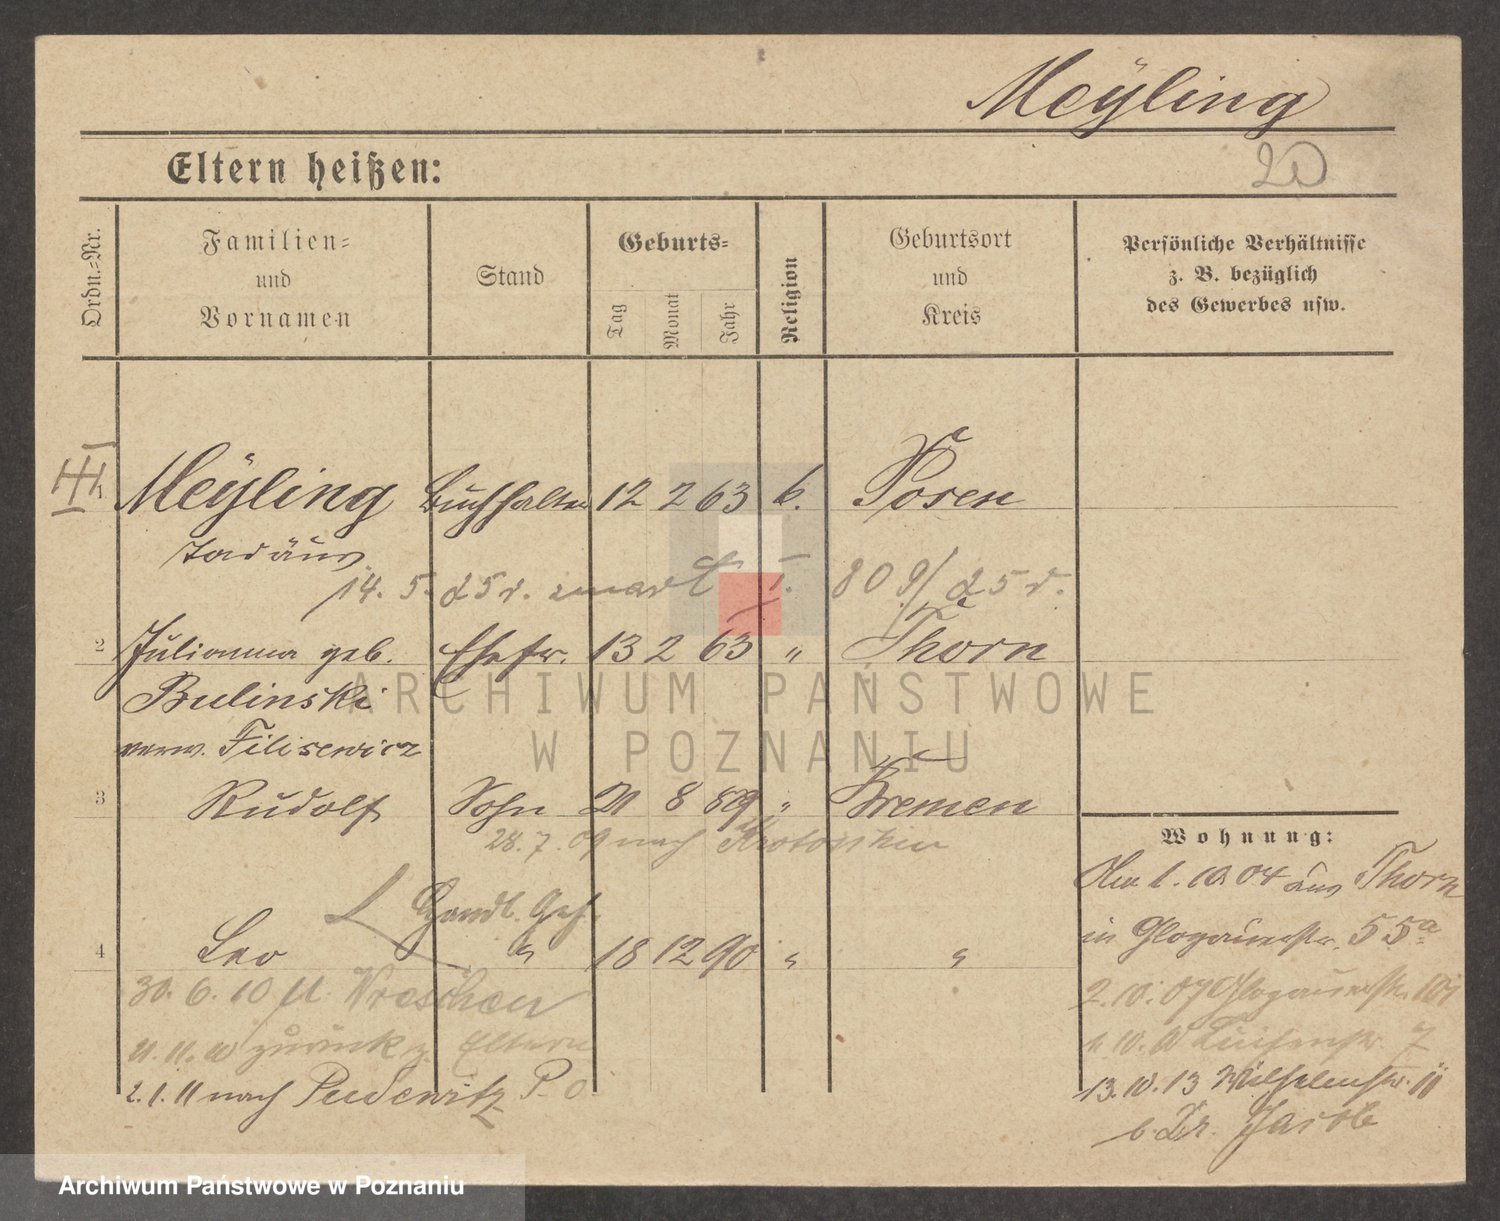 Meÿling
20
Eltern heißen:
Ordn.=Nr.
Familien=
und
Vornamen
Stand
Geburts=
Tag
Monat
Jahr
Religion
Geburtsort
und
Kreis
Persönliche Verhältnisse
z. B. bezüglich
des Gewerbes usw.
1 Meÿling Buchhalter 12 2 63 k. Posen
Tadäus
14. 5. 25 r. zmarł I. 809/25 r.
2 Julianna geb. Ehefr. 13 2 63 " Thorn
Bulinski
verw. Filisewicz
3 Rudolf Sohn 21 8 89 " Bremen
28. 7. 09 nach Krotoschin
Handl. Geh.
4 Leo " 18 12 90 " "
30. 6. 10 n. Wreschen
11. 11. 10 zurück z. Eltern
2. 1. 11 nach Pudewitz P. O
Wohnung:
Am 1. 10. 04 aus Thorn
in Glogauerstr. 55a
2. 10. 07 Glogauerstr. 101
1. 10. 10 Luisenstr. 7
13. 10. 13 Wilhelmstr. 11
b. Dr. Jacob
ARCHIWUM PAŃSTWOWE
W POZNANIU
Archiwum Państwowe w Poznaniu